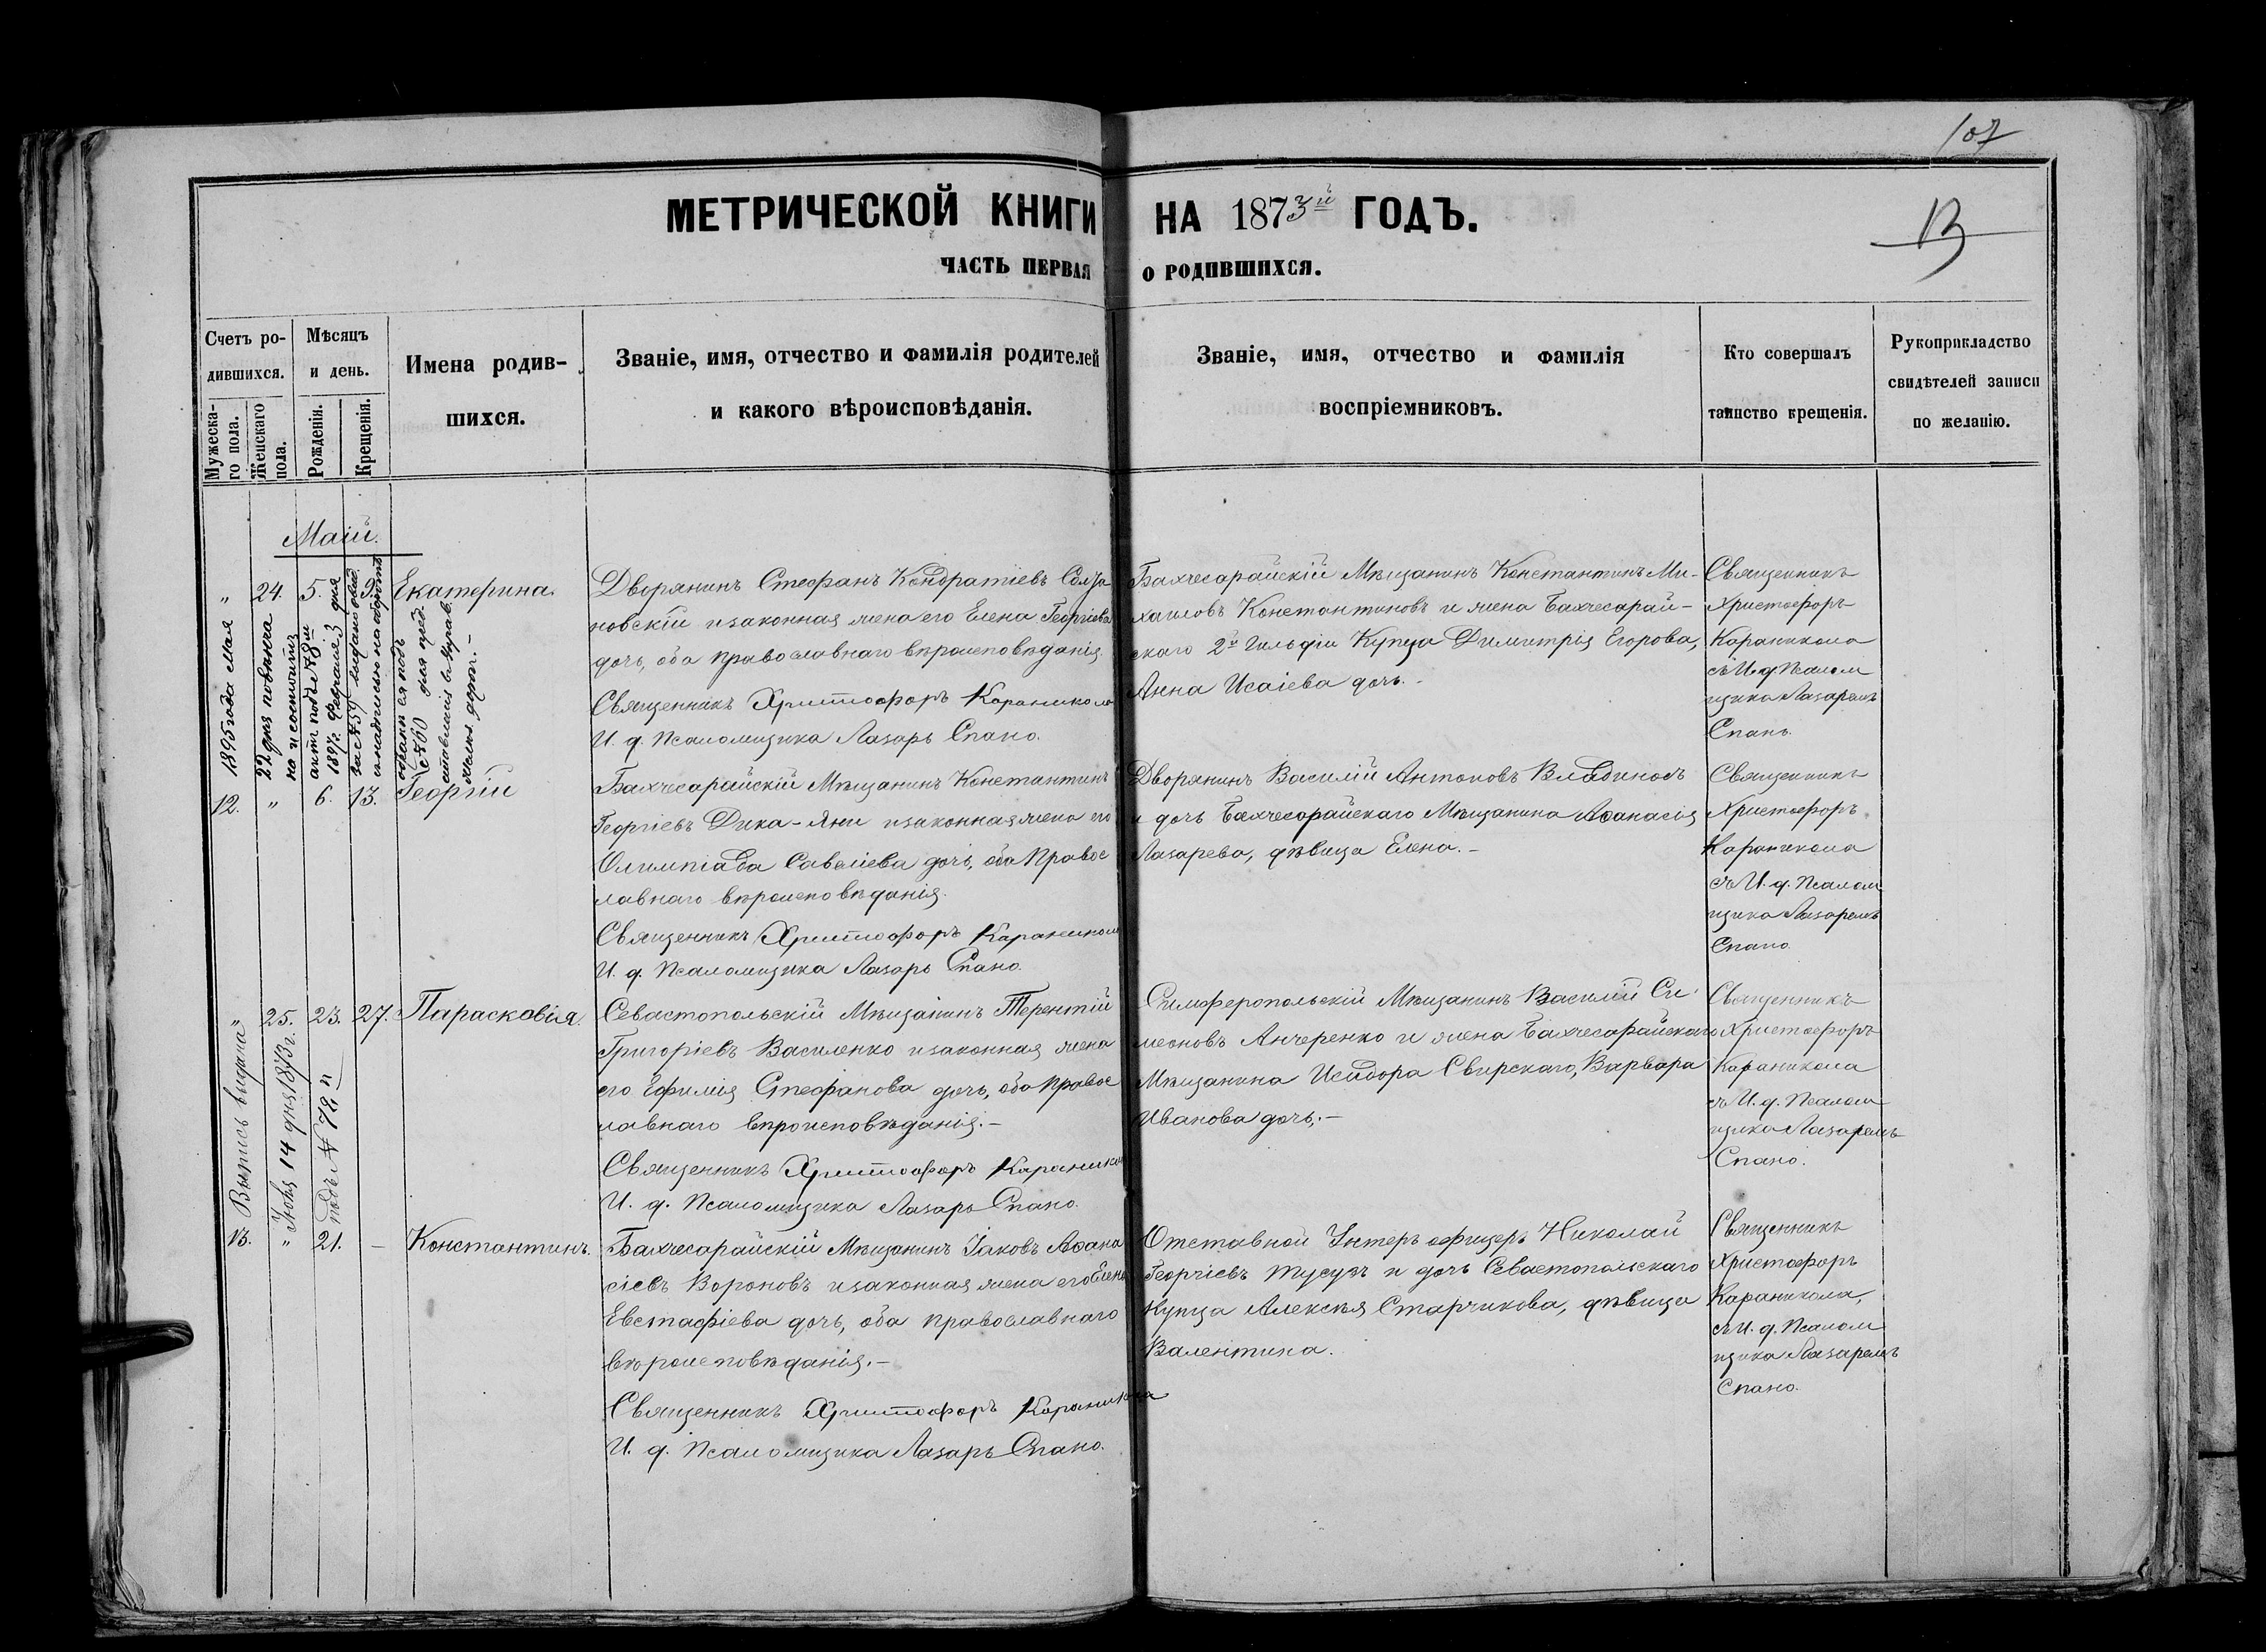 107
13
МЕТРИЧЕСКОЙ КНИГИ НА 1873й ГОДЪ.
ЧАСТЬ ПЕРВАЯ О РОДИВШИХСЯ.
Счетъ ро-
дившихся.
Мужеска-
го пола.
Женскаго
пола.
Мѣсяцъ
и день.
Рожденія.
Крещенія.
Имена родив-
шихся.
Званіе, имя, отчество и фамилія родителей
и какого вѣроисповѣданія.
Званіе, имя, отчество и фамилія
воспріемниковъ.
Кто совершалъ
таинство крещенія.
Рукоприкладство
свидѣтелей записи
по желанію.
Маій.
" 24. 5. 9. Екатерина.
Дворянинъ Стефанъ Кондратіевъ
новскій и законная жена его Елена Георгіева
дочь, оба православнаго вѣроисповѣданія.
Священникъ Христофоръ Караникола
И. д. Псаломщика Лазарь Спано.
Бахчесарайскій Мѣщанинъ Константинъ Ми-
хаиловъ Константиновъ и жена Бахчесарай-
скаго 2й Гильдіи Купца Димитрія Егорова,
Анна Исаіева дочь.-
Священникъ
Христофоръ
Караникола
съ И. д. Псалом
щика Лазаремъ
Спано.
1895 года Мая
22 дня повѣнча
на и состоитъ
актъ подъ № 8м
1897. Февраля 3 дня
за № 59 выдано свид.
12. " 6. 13. Георгій
Бахчесарайскій Мѣщанинъ Константинъ
Георгіевъ Дика-Яни и законная жена его
Олимпіада Савеліева дочь, оба Правос
лавнаго вѣроисповѣданія.
Священникъ Христофоръ Караникола
И. д. Псаломщика Лазарь Спано.
Дворянинъ Василій Антоновъ
и дочь Бахчесарайскаго Мѣщанина Аѳанасія
Лазарева, дѣвица Елена.-
Священникъ
Христофоръ
Караникола
съ И. д. Псалом
щика Лазаремъ
Спано.
" 25. 23. 27. Парасковія.
Севастопольскій Мѣщанинъ Терентій
Григоріевъ Василенко и законная жена
его Ефимія Стефанова дочь, оба Правос
лавнаго вѣроисповѣданія.-
Священникъ Христофоръ Караникола
И. д. Псаломщика Лазарь Спано.
Симферопольскій Мѣщанинъ Василій Си-
меоновъ Анчеренко и жена Бахчесарайскаго
Мѣщанина Исидора Свирскаго, Варвара
Иванова дочь.-
Священникъ
Христофоръ
Караникола
съ И. д. Псалом
щика Лазаремъ
Спано.
Выпись выдана
Іюня 14 дня 1873 г.
подъ № 72м
13. " 21. - Константинъ.
Бахчесарайскій Мѣщанинъ Іаковъ Аѳана
сіевъ Вороновъ и законная жена его Елена
Евстафіева дочь, оба православнаго
вѣроисповѣданія.-
Священникъ Христофоръ Караникола
И. д. Псаломщика Лазарь Спано.
Отставной Унтеръ офицеръ Николай
Георгіевъ и дочь Севастопольскаго
Купца Алексѣя Старчикова, дѣвица
Валентина.
Священникъ
Христофоръ
Караникола,
съ И. д. Псалом
щика Лазаремъ
Спано.